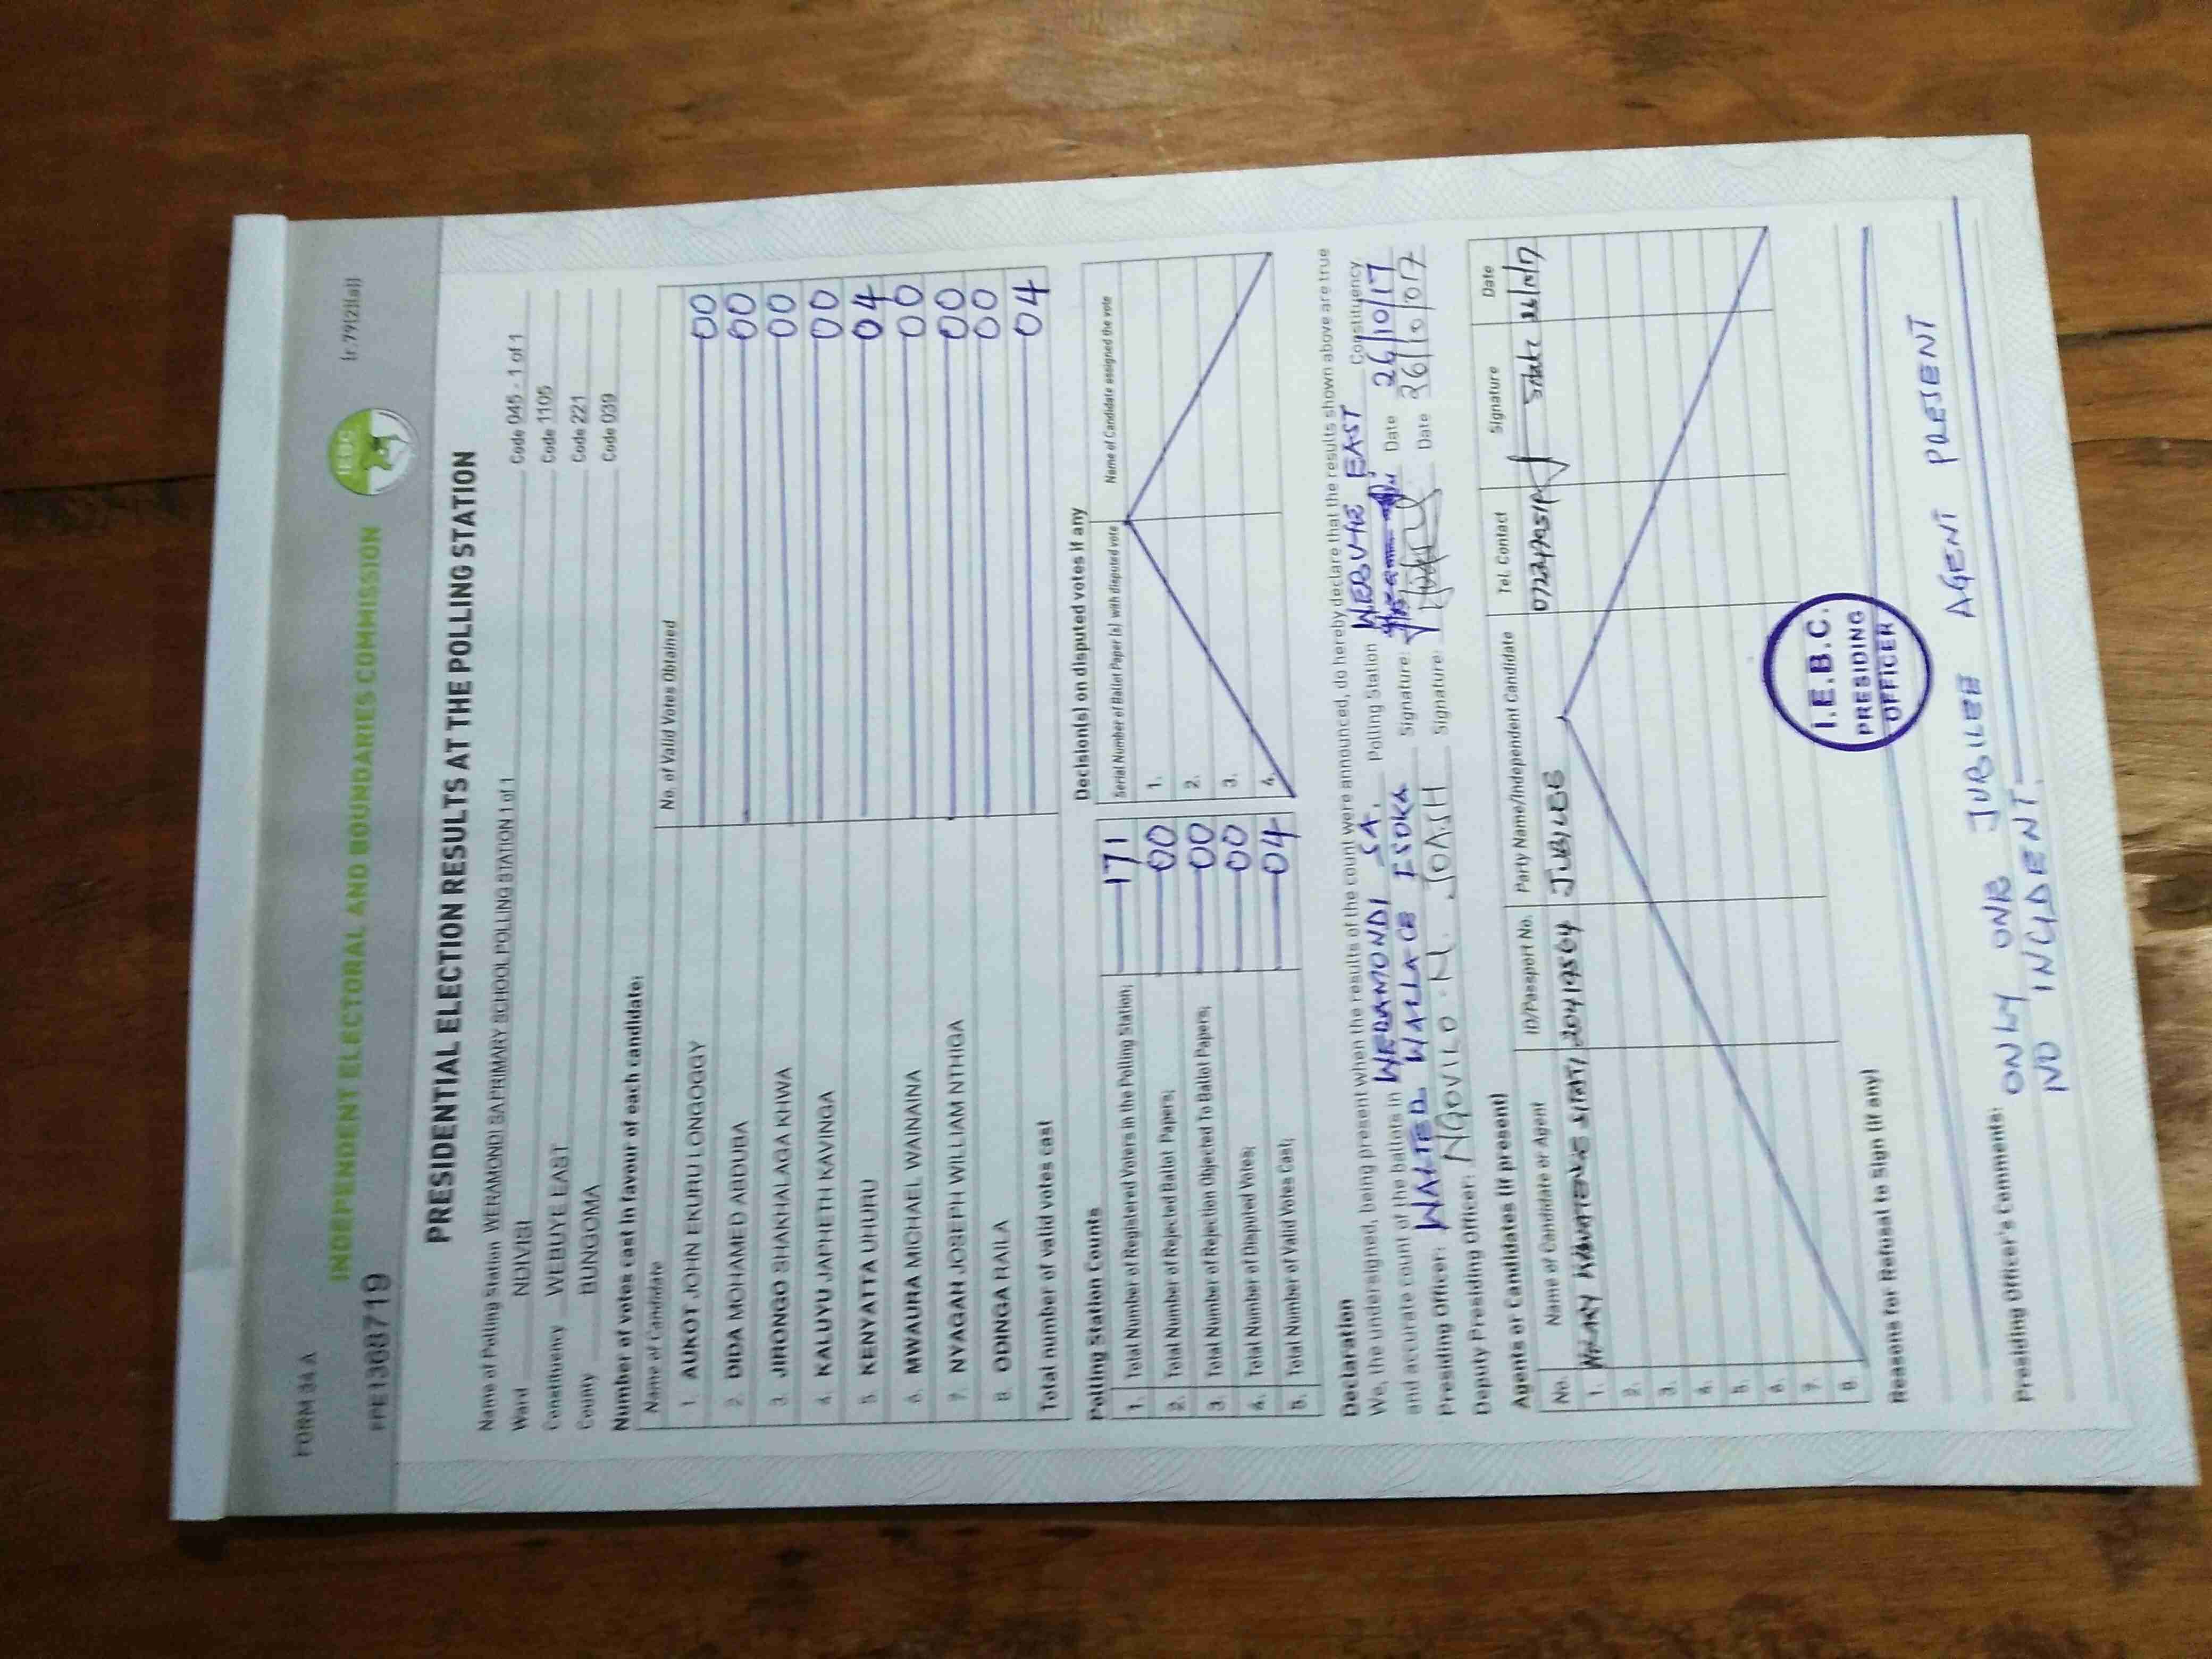 FORM 34 A (r.79(2)(a))
INDEPENDENT ELECTORAL AND BOUNDARIES COMMISSION
IEBC
PRESIDENTIAL ELECTION RESULTS AT THE POLLING STATION
Name of Polling Station WERAMONDI SA PRIMARY SCHOOL POLLING STATION 1 of 1 Code 045 - 1 of 1
Ward NDIVISI Code 1105
Constituency WEBUYE EAST Code 221
County BUNGOMA Code 039
Number of votes cast in favour of each candidate:
Name of Candidate No. of Valid Votes Obtained
1. AUKOT JOHN EKURU LONGOGGY 00
2. DIDA MOHAMED ABDUBA 00
3. JIRONGO SHAKHALAGA KHWA 00
4. KALUYU JAPHETH KAVINGA 00
5. KENYATTA UHURU 04
6. MWAURA MICHAEL WAINAINA 00
7. NYAGAH JOSEPH WILLIAM NTHIGA 00
8. ODINGA RAILA 00
Total number of valid votes cast 04
Polling Station Counts
1. Total Number of Registered Voters in the Polling Station; 171
2. Total Number of Rejected Ballot Papers; 00
3. Total Number of Rejection Objected To Ballot Papers; 00
4. Total Number of Disputed Votes; 00
5. Total Number of Valid Votes Cast; 04
Decision(s) on disputed votes if any
Serial Number of Ballot Paper (s) with disputed vote Name of Candidate assigned the vote
1.
2.
3.
4.
Declaration
We, the undersigned, being present when the results of the count were announced, do hereby declare that the results shown above are true
and accurate count of the ballots in WERAMONDI SA. Polling Station WEBUYE EAST Constituency
Presiding Officer: WALTER WALLACE Signature: Date 26/10/17
Deputy Presiding Officer: N. JOASH Signature: Date 26/10/017
Agents or Candidates (if present)
No. Name of Candidate or Agent ID/Passport No. Party Name/Independent Candidate Tel. Contact Signature Date
1. JUBILEE 26/10/17
2.
3.
4.
5.
6.
7.
8.
I.E.B.C.
PRESIDING
OFFICER
Reasons for Refusal to Sign (if any)
Presiding Officer's Comments: ONLY ONE JUBILEE AGENT PRESENT
NO INCIDENT